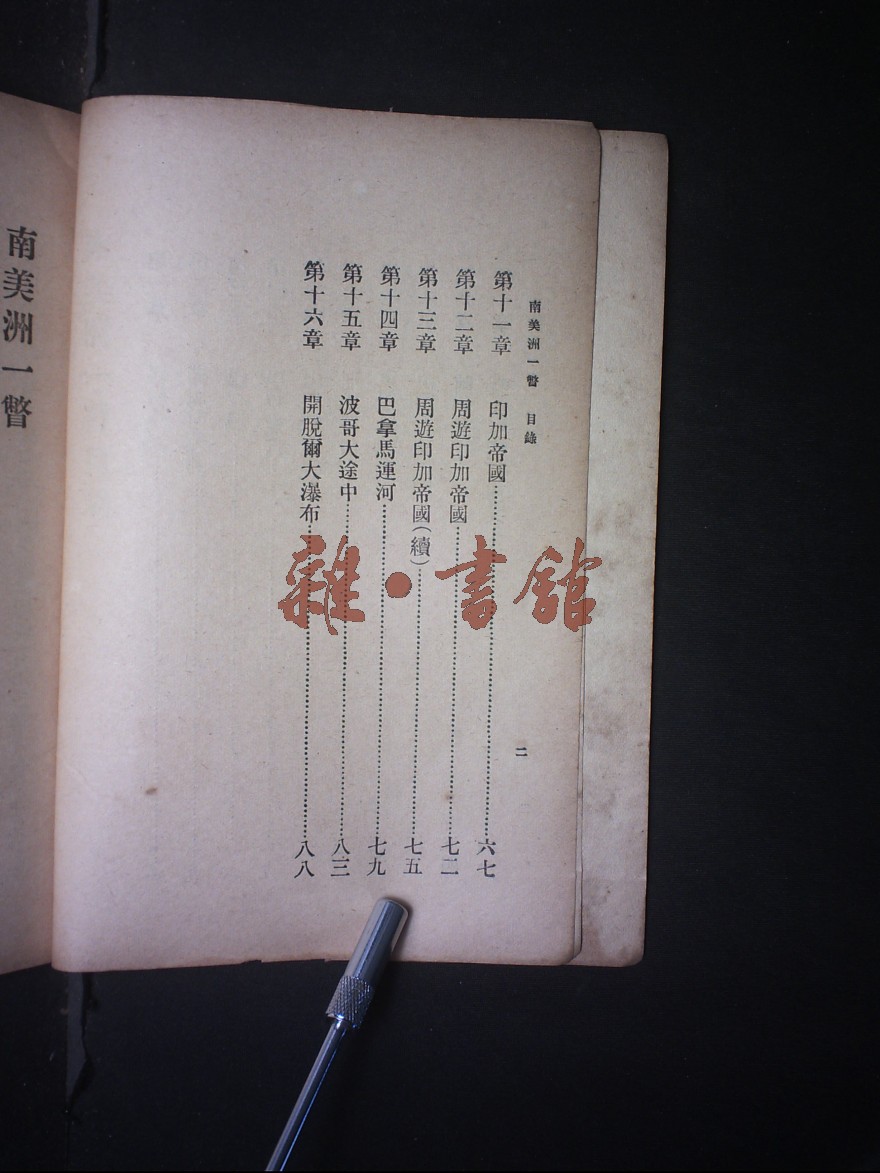 南美洲一瞥 目錄 二
第十一章 印加帝國……六七
第十二章 周遊印加帝國……七二
第十三章 周遊印加帝國(續)……七五
第十四章 巴拿馬運河……七九
第十五章 波哥大途中……八三
第十六章 開脫爾大瀑布……八八
南美洲一瞥
雜·書館